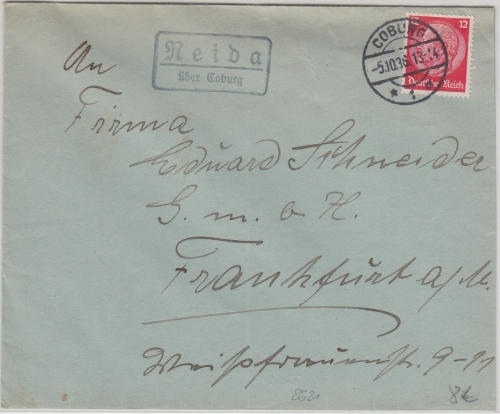 Neida
über Coburg
COBURG
-5.10.36 13-14
* 1
12
Deutsches Reich
An
Firma
Eduard Schneider
G. m. b. H.
Frankfurt a/M.
Weißfrauenstr. 9-11
8621
8€